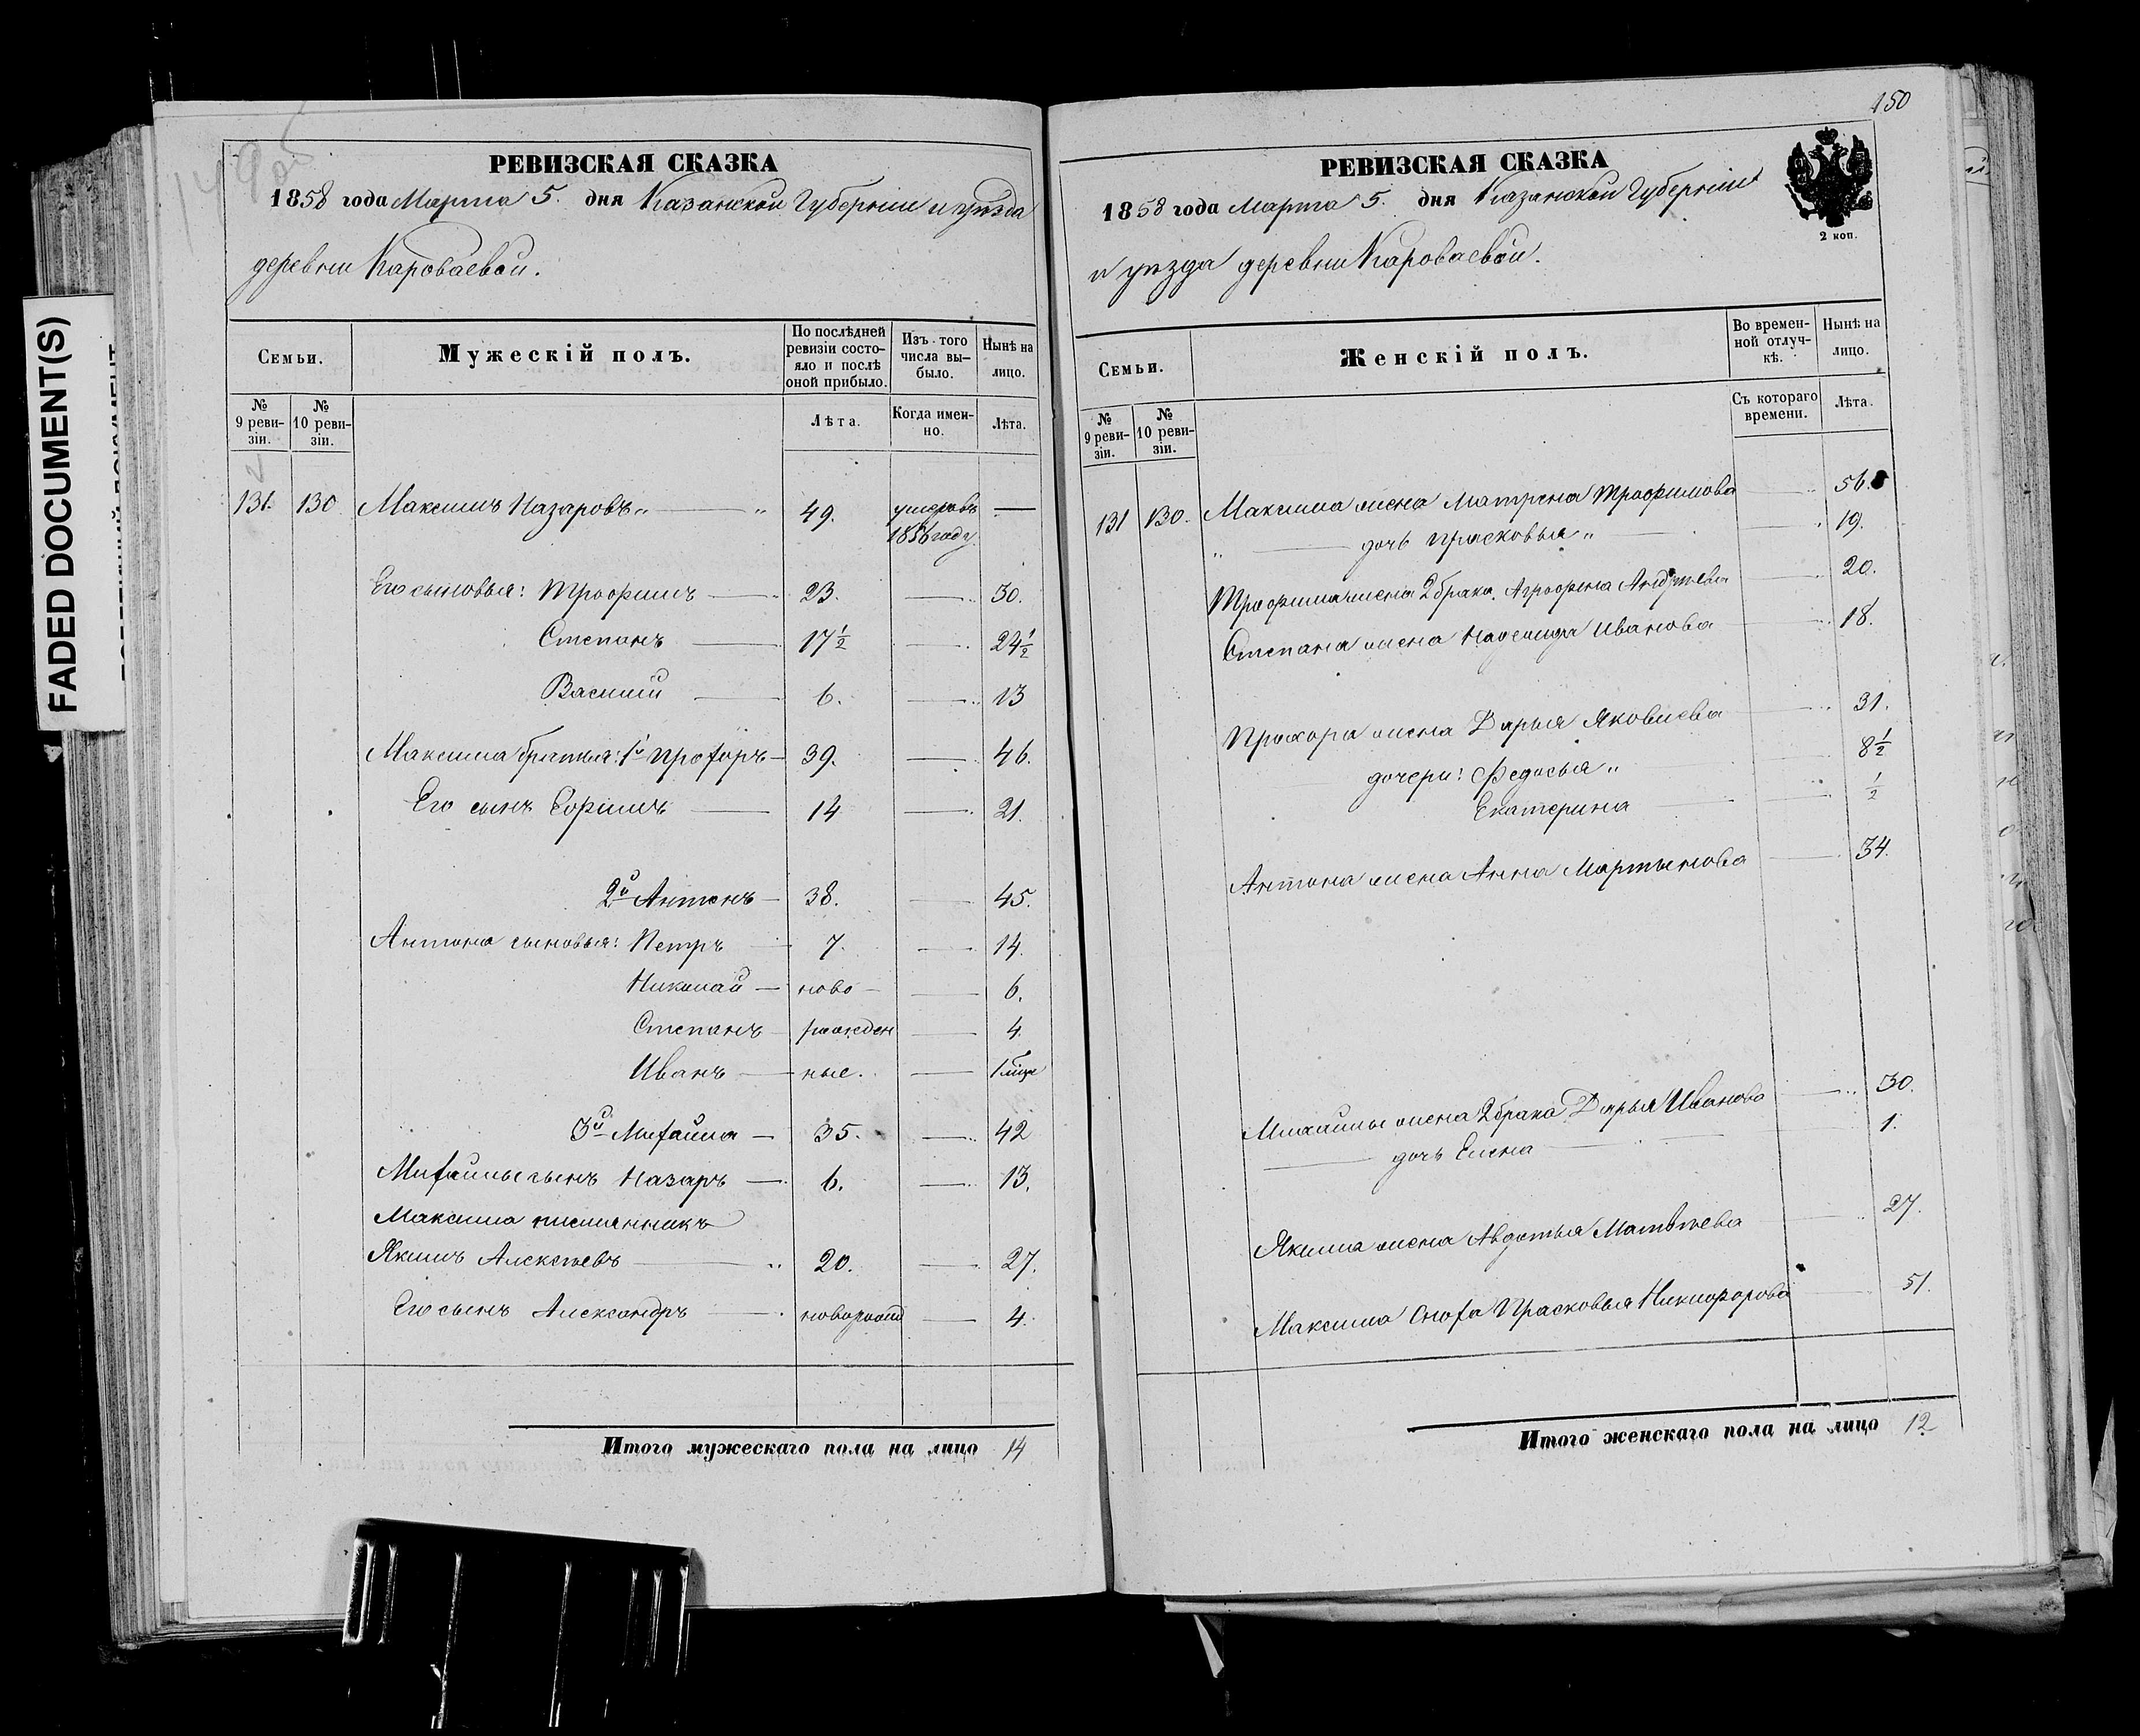 FADED DOCUMENT(S)
РЕВИЗСКАЯ СКАЗКА
1858 года Марта 5. дня Казанской Губернии и уѣзда
деревни Кароваевой.
Семьи.
Мужескій полъ.
По послѣдней ревизіи состояло и послѣ оной прибыло.
Изъ того числа выбыло.
Нынѣ на лицо.
№ 9 ревизіи.
№ 10 ревизіи.
Лѣта.
Когда именно.
Лѣта.
131. 130 Максимъ Назаровъ „ — „ 49. умеръ въ —
1856 году.
Его сыновья: Трофимъ — 23. — 30.
Степанъ — 17½ — 24½
Василій — 6. — 13
Максима братья: 1й Прохоръ — 39. — 46.
Его сынъ Ефимъ — 14 — 21.
2й Антонъ — 38. — 45.
Антона сыновья: Петръ — 7. — 14.
Николай — ново — 6.
Степанъ — рожден — 4.
Иванъ — ные. —
3й Михаила — 35. — 42
Михайлы сынъ Назаръ — 6. — 13.
Максима племянникъ
Якимъ Алексѣевъ — 20. — 27.
Его сынъ Александръ — новорожд — 4.
Итого мужескаго пола на лицо 14
150
РЕВИЗСКАЯ СКАЗКА
1858 года Марта 5. дня Казанской Губерніи
2 коп.
и уѣзда деревни Кароваевой.
Семьи.
Женскій полъ.
Во временной отлучкѣ.
Нынѣ на лицо.
№ 9 ревизіи.
№ 10 ревизіи.
Съ котораго времени.
Лѣта.
131 130. Максима жена Матрена Трофимова — 56.
„ — дочь Прасковья „ — 19.
Трофима жена 2 брака Агрофена Андрѣева — 20.
Степана жена Надежда Иванова — 18.
Прохора жена Дарья Яковлева — 31.
дочери: Федосья „ — 8½
Екатерина — ½
Антона жена Анна Мартынова — 34.
Михайлы жена 2 брака Дарья Иванова — 30.
— дочь Елена — 1.
Якима жена Авдотья Матвѣева — 27.
Максима сноха Прасковья Никифорова — 51.
Итого женскаго пола на лицо 12